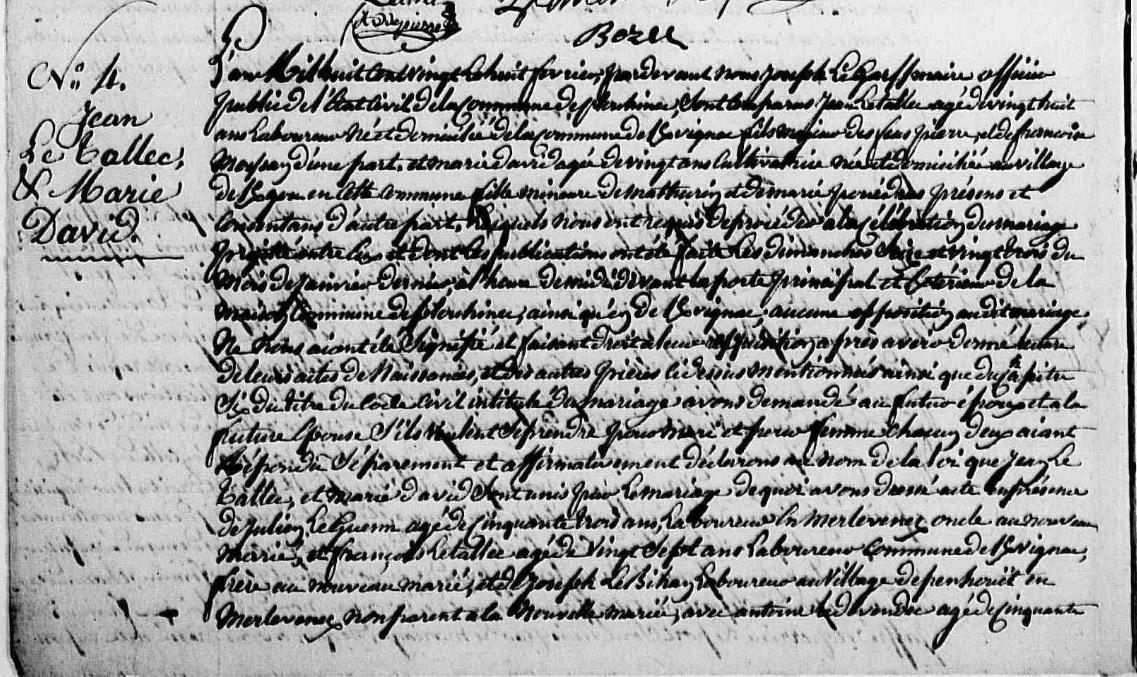 Bozec
N.º 4.
Jean
Le Tallec,
& Marie
David.
L'an Mil huit Cent vingt le huit fevrier, par devant nous Joseph Le Garssmaire officier
public de l'Etat Civil de la Commune de plerhinec Sont Comparus Jean Le tallec agé de vingt huit
ans Laboureur Né et demicilié de la Commune de Kervignac fils majeur des feus pierre, et de francoise
Moysan d'une part. et marie david agée de vingt ans Cultivatrice née et domiciliée au village
de en Cette Commune fille mineure de Mathurin et de marie présens et
Consentans d'autre part, Lesquels nous ont requis de procéder à la Célébration du mariage
projetté entre Eux et dont Les publications ont été faite Les dimanches Seize et vingt trois du
Mois de Janvier dernier, à l'heure de midi devant la porte principal et Exterieur de la
maison Commune de plerhinec, ainsi qu'en de Kervignac, aucune opposition audit mariage
Ne Nous aiant été Signifié et faisant droit à leur requisition, après avoir donné lecture
de leurs actes de Naissances, et des autres pièces ci dessus mentionnés ainsi que du Chapitre
Six du titre du Code Civil intitulé du mariage avons demandé au futur époux et a la
future Epouse S'ils veulent Se prendre pour mari et pour femme chacun d'eux aiant
Répondu Séparement et affirmativement déclarons au nom de la loi que Jean Le
Tallec, et marie david Sont unis par Le mariage de quoi avons dressé acte en présence
de Julien Le Guenn agé de Cinquante trois ans Laboureur En Merlevenez oncle au nouveau
Marié, et françois Le tallec agé de Vingt Sept ans Laboureur Commune de Kervignac,
frere au nouveau marié, et de Joseph Le Bihan Laboureur au Village de penhoüët en
Merlevenez non parent a la Nouvelle mariée, avec antoine agé de Cinquante